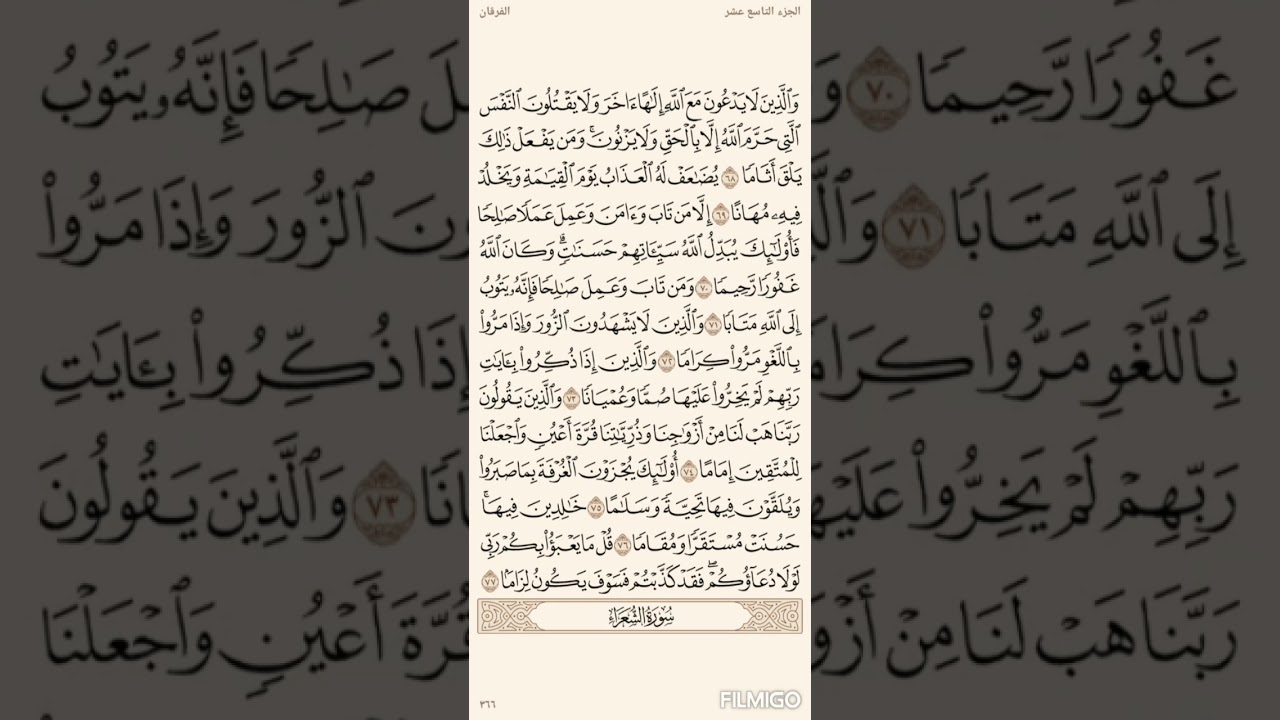 الجزء التاسع عشر
الفرقان
وَٱلَّذِينَ لَا يَدْعُونَ مَعَ ٱللَّهِ إِلَٰهًا ءَاخَرَ وَلَا يَقْتُلُونَ ٱلنَّفْسَ
ٱلَّتِى حَرَّمَ ٱللَّهُ إِلَّا بِٱلْحَقِّ وَلَا يَزْنُونَ ۚ وَمَن يَفْعَلْ ذَٰلِكَ
يَلْقَ أَثَامًا ٦٨ يُضَٰعَفْ لَهُ ٱلْعَذَابُ يَوْمَ ٱلْقِيَٰمَةِ وَيَخْلُدْ
فِيهِۦ مُهَانًا ٦٩ إِلَّا مَن تَابَ وَءَامَنَ وَعَمِلَ عَمَلًا صَٰلِحًا
فَأُو۟لَٰٓئِكَ يُبَدِّلُ ٱللَّهُ سَيِّـَٔاتِهِمْ حَسَنَٰتٍ ۗ وَكَانَ ٱللَّهُ
غَفُورًا رَّحِيمًا ٧٠ وَمَن تَابَ وَعَمِلَ صَٰلِحًا فَإِنَّهُۥ يَتُوبُ
إِلَى ٱللَّهِ مَتَابًا ٧١ وَٱلَّذِينَ لَا يَشْهَدُونَ ٱلزُّورَ وَإِذَا مَرُّوا۟
بِٱللَّغْوِ مَرُّوا۟ كِرَامًا ٧٢ وَٱلَّذِينَ إِذَا ذُكِّرُوا۟ بِـَٔايَٰتِ
رَبِّهِمْ لَمْ يَخِرُّوا۟ عَلَيْهَا صُمًّا وَعُمْيَانًا ٧٣ وَٱلَّذِينَ يَقُولُونَ
رَبَّنَا هَبْ لَنَا مِنْ أَزْوَٰجِنَا وَذُرِّيَّٰتِنَا قُرَّةَ أَعْيُنٍ وَٱجْعَلْنَا
لِلْمُتَّقِينَ إِمَامًا ٧٤ أُو۟لَٰٓئِكَ يُجْزَوْنَ ٱلْغُرْفَةَ بِمَا صَبَرُوا۟
وَيُلَقَّوْنَ فِيهَا تَحِيَّةً وَسَلَٰمًا ٧٥ خَٰلِدِينَ فِيهَا ۚ
حَسُنَتْ مُسْتَقَرًّا وَمُقَامًا ٧٦ قُلْ مَا يَعْبَؤُا۟ بِكُمْ رَبِّى
لَوْلَا دُعَآؤُكُمْ ۖ فَقَدْ كَذَّبْتُمْ فَسَوْفَ يَكُونُ لِزَامًۢا ٧٧
سُورَةُ الشُّعَرَاءِ
٣٦٦
FILMIGO